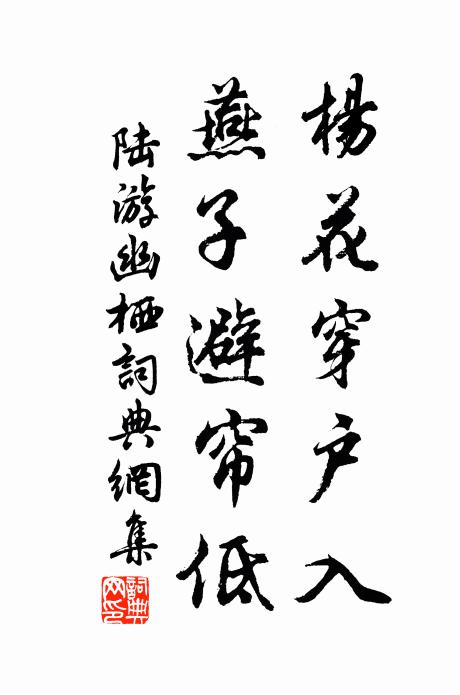 楊花穿户入
燕子避帘低
陆游幽栖詞典網集
詞典网印